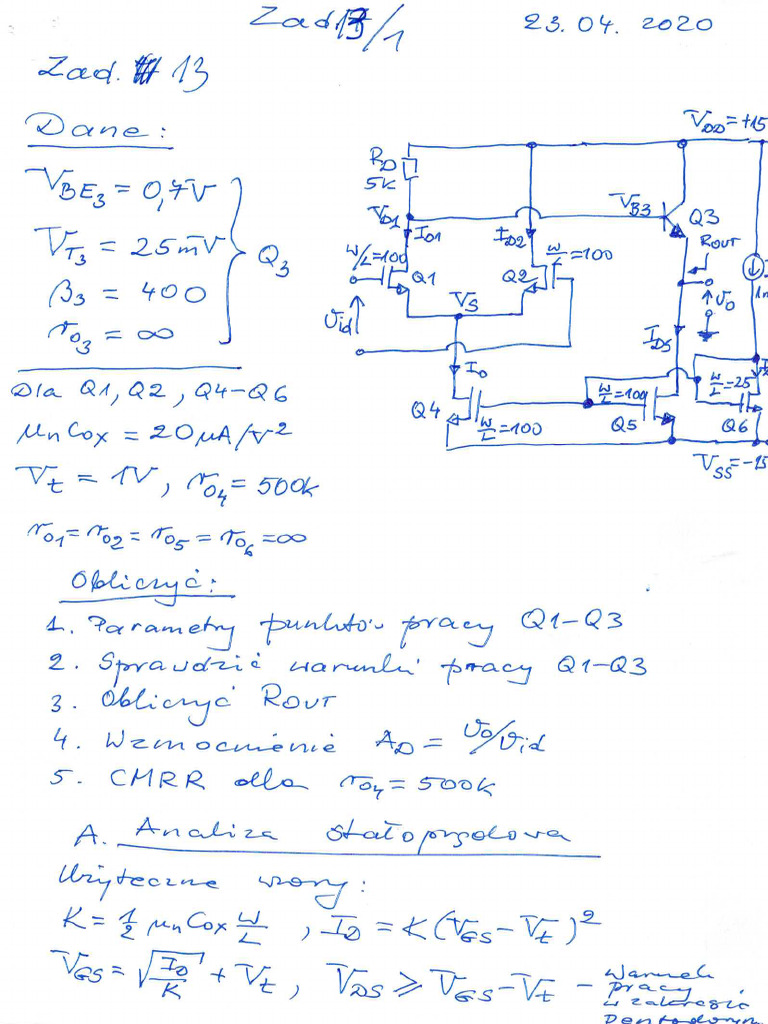 Zad 13/1
23.04.2020
Zad. 13
Dane:
V_BE3 = 0,7V
V_T3 = 25mV
β3 = 400
r_o3 = ∞
Q3
Dla Q1, Q2, Q4-Q6
μnCox = 20μA/V²
Vt = 1V, r_o4 = 500k
r_o1 = r_o2 = r_o5 = r_o6 = ∞
V_DD = +15
R_D
5K
V_D1
I_D1
I_D2
V_B3
Q3
R_OUT
W/L=100
Q1
Q2
W/L=100
V_S
v_id
v_o
I_D5
1m
I_o
Q4
W/L=100
W/L=100
Q5
W/L=25
Q6
V_SS = -15
Obliczyć:
1. Parametry punktów pracy Q1-Q3
2. Sprawdzić warunki pracy Q1-Q3
3. Obliczyć R_OUT
4. Wzmocnienie A_D = v_o/v_id
5. CMRR dla r_o4 = 500k
A. Analiza stałoprądowa
Użyteczne wzory:
K = 1/2 μnCox W/L , I_D = K(V_GS - V_t)²
V_GS = √(I_D/K) + V_t , V_DS ⩾ V_GS - V_t - warunek
pracy
w zakresie
pentodowym